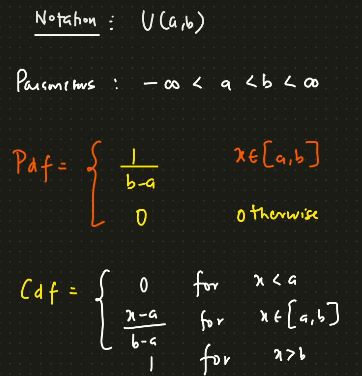 Notation : U(a,b)
Parameters : -∞ < a < b < ∞
Pdf = { 1/(b-a) x∈[a,b]
0 otherwise
Cdf = { 0 for x<a
(x-a)/(b-a) for x∈[a,b]
1 for x>b